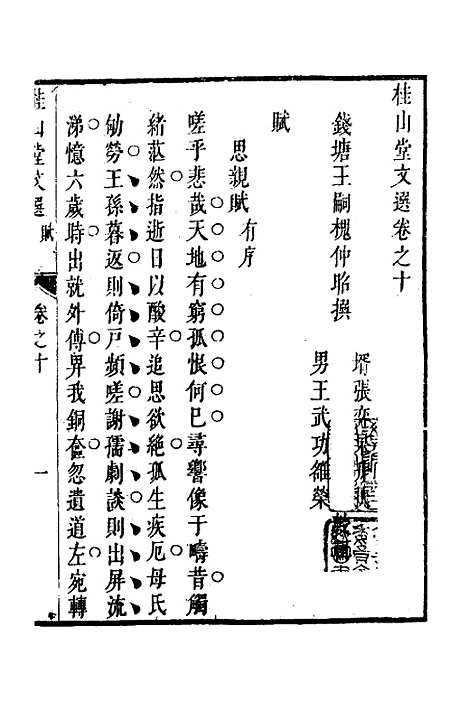 桂山堂文選卷之十
錢塘王嗣槐仲昭撰
壻張奕
男王武功維榮
賦
思親賦有序
嗟乎悲哉天地有窮孤恨何巳尋響像于疇昔觸
緒茫然指逝日以酸辛追思欲絕孤生疾厄母氏
劬勞王孫暮返則倚戸頻嗟謝孺劇談則出屏流
涕憶六歲時出就外傅畀我銅奩忽遺道左宛轉
桂山堂文選 賦 卷之十 一